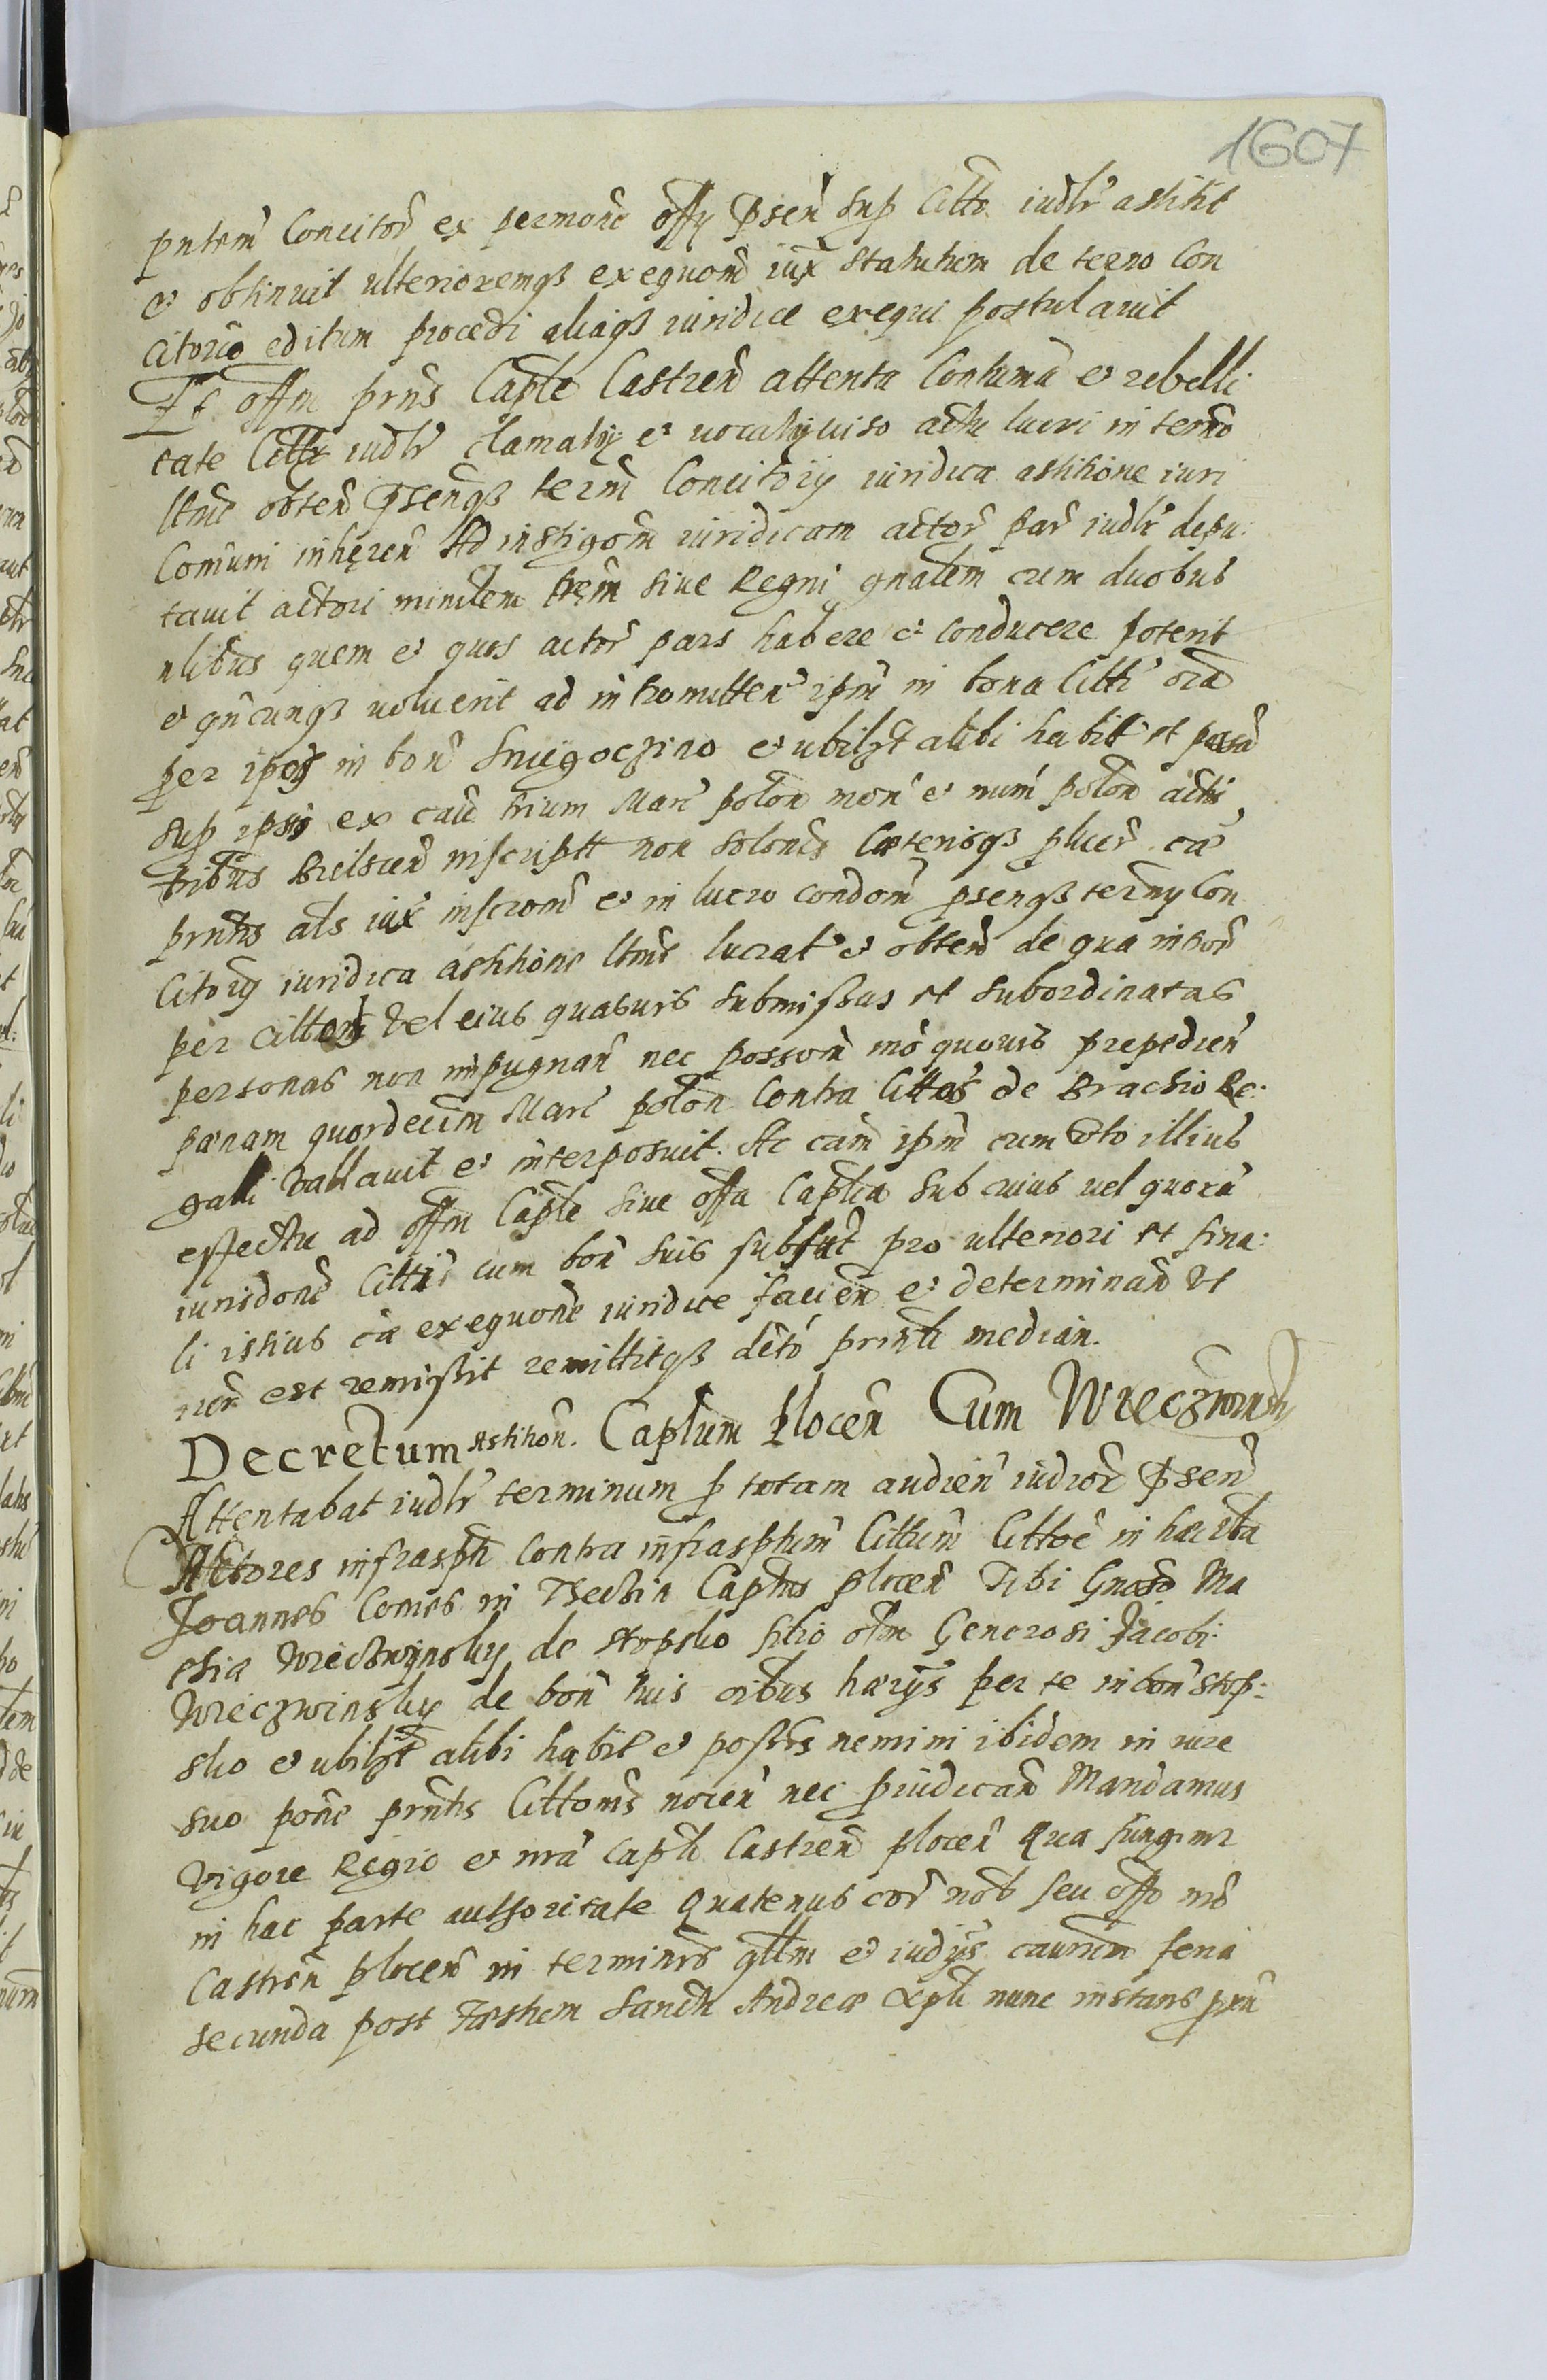 1607
pntem Concitor ex permone offy psen sup Citto iudlr astitit
et obtinuit ulterioremqß exequom iux statutum de terno Con
citorio editum procedi aliaqß iuridice exequi postulavit
Et offm prns Caple Castren attenta Contuma et rebelli
tate Citti iudlr clamaty et vocaty viso actu lucri in termo
ltme obten psenqß term Concitorij iuridica astitione iuri
Comuni inheren Ad instigom iuridicam actor par iudlr depu:
tavit actori minilem trem sive Regni gnalem cum duobus
nlibus quem et quos actor pars habere et conducere poterit
et quncunqß voluerit ad intromitten ipm in bona Citti oia
per ipos in bon Smigoczino et ubilzt alibi habit et possa
sup ipsis ex cau trium Marc polon mon et num polon actis
tribus Bielscen inscriptt non solonis Caeterisqß plucr cae
prntis als iux inscrom et in lucro condom psenqß termj Con
citorij iuridica astitione ltme lucrat et obten de qua intror
per cittom vel eius quasuis submissas et subordinatas
personas non impugnan nec possom mo quouis prepedien
paenam quordecim Marc polon Contra Cittos de Brachio Re:
gali vallavit et interposuit. Ac cam ipm cum toto illius
effectu ad offm Caple sive offa Caplia sub cuius vel quoru
iurisdone Cittis cum bon suis subsut pro ulteriori et fina:
li istius cae exequone iuridice facien et determinan Ut
iuor est remissit remittitqß deto prnti median.
Decretum Astition. Caplum Plocen Cum Wreczwinsky
Attentabat iudlr terminum p totam audien iudior psen
Actores infraspti contra infrasptum Cittum Cittoe in haec vba
Joannes Comes in Techin Captus plocen Tibi Gnoso Ma
thia Wrieczwynsky de Stopsko filio olim Generosi Jacobi:
Wrieczwinsky de bon tuis oibus haerijs per te in bon Stop:
sko et ubilzt alibi habit et possis nemini ibidem in iure
suo pone prntis Cittonis nocen nec piudican Mandamus
Vigore Regio et nra capli Castren plocen Qua fungimr
in hac parte authoritate Quatenus cor nob seu offo nro
Castren plocen in terminis qllm et iudijs caurum feria
secunda post Faestum Sancti Andreae Apli nunc instans prn